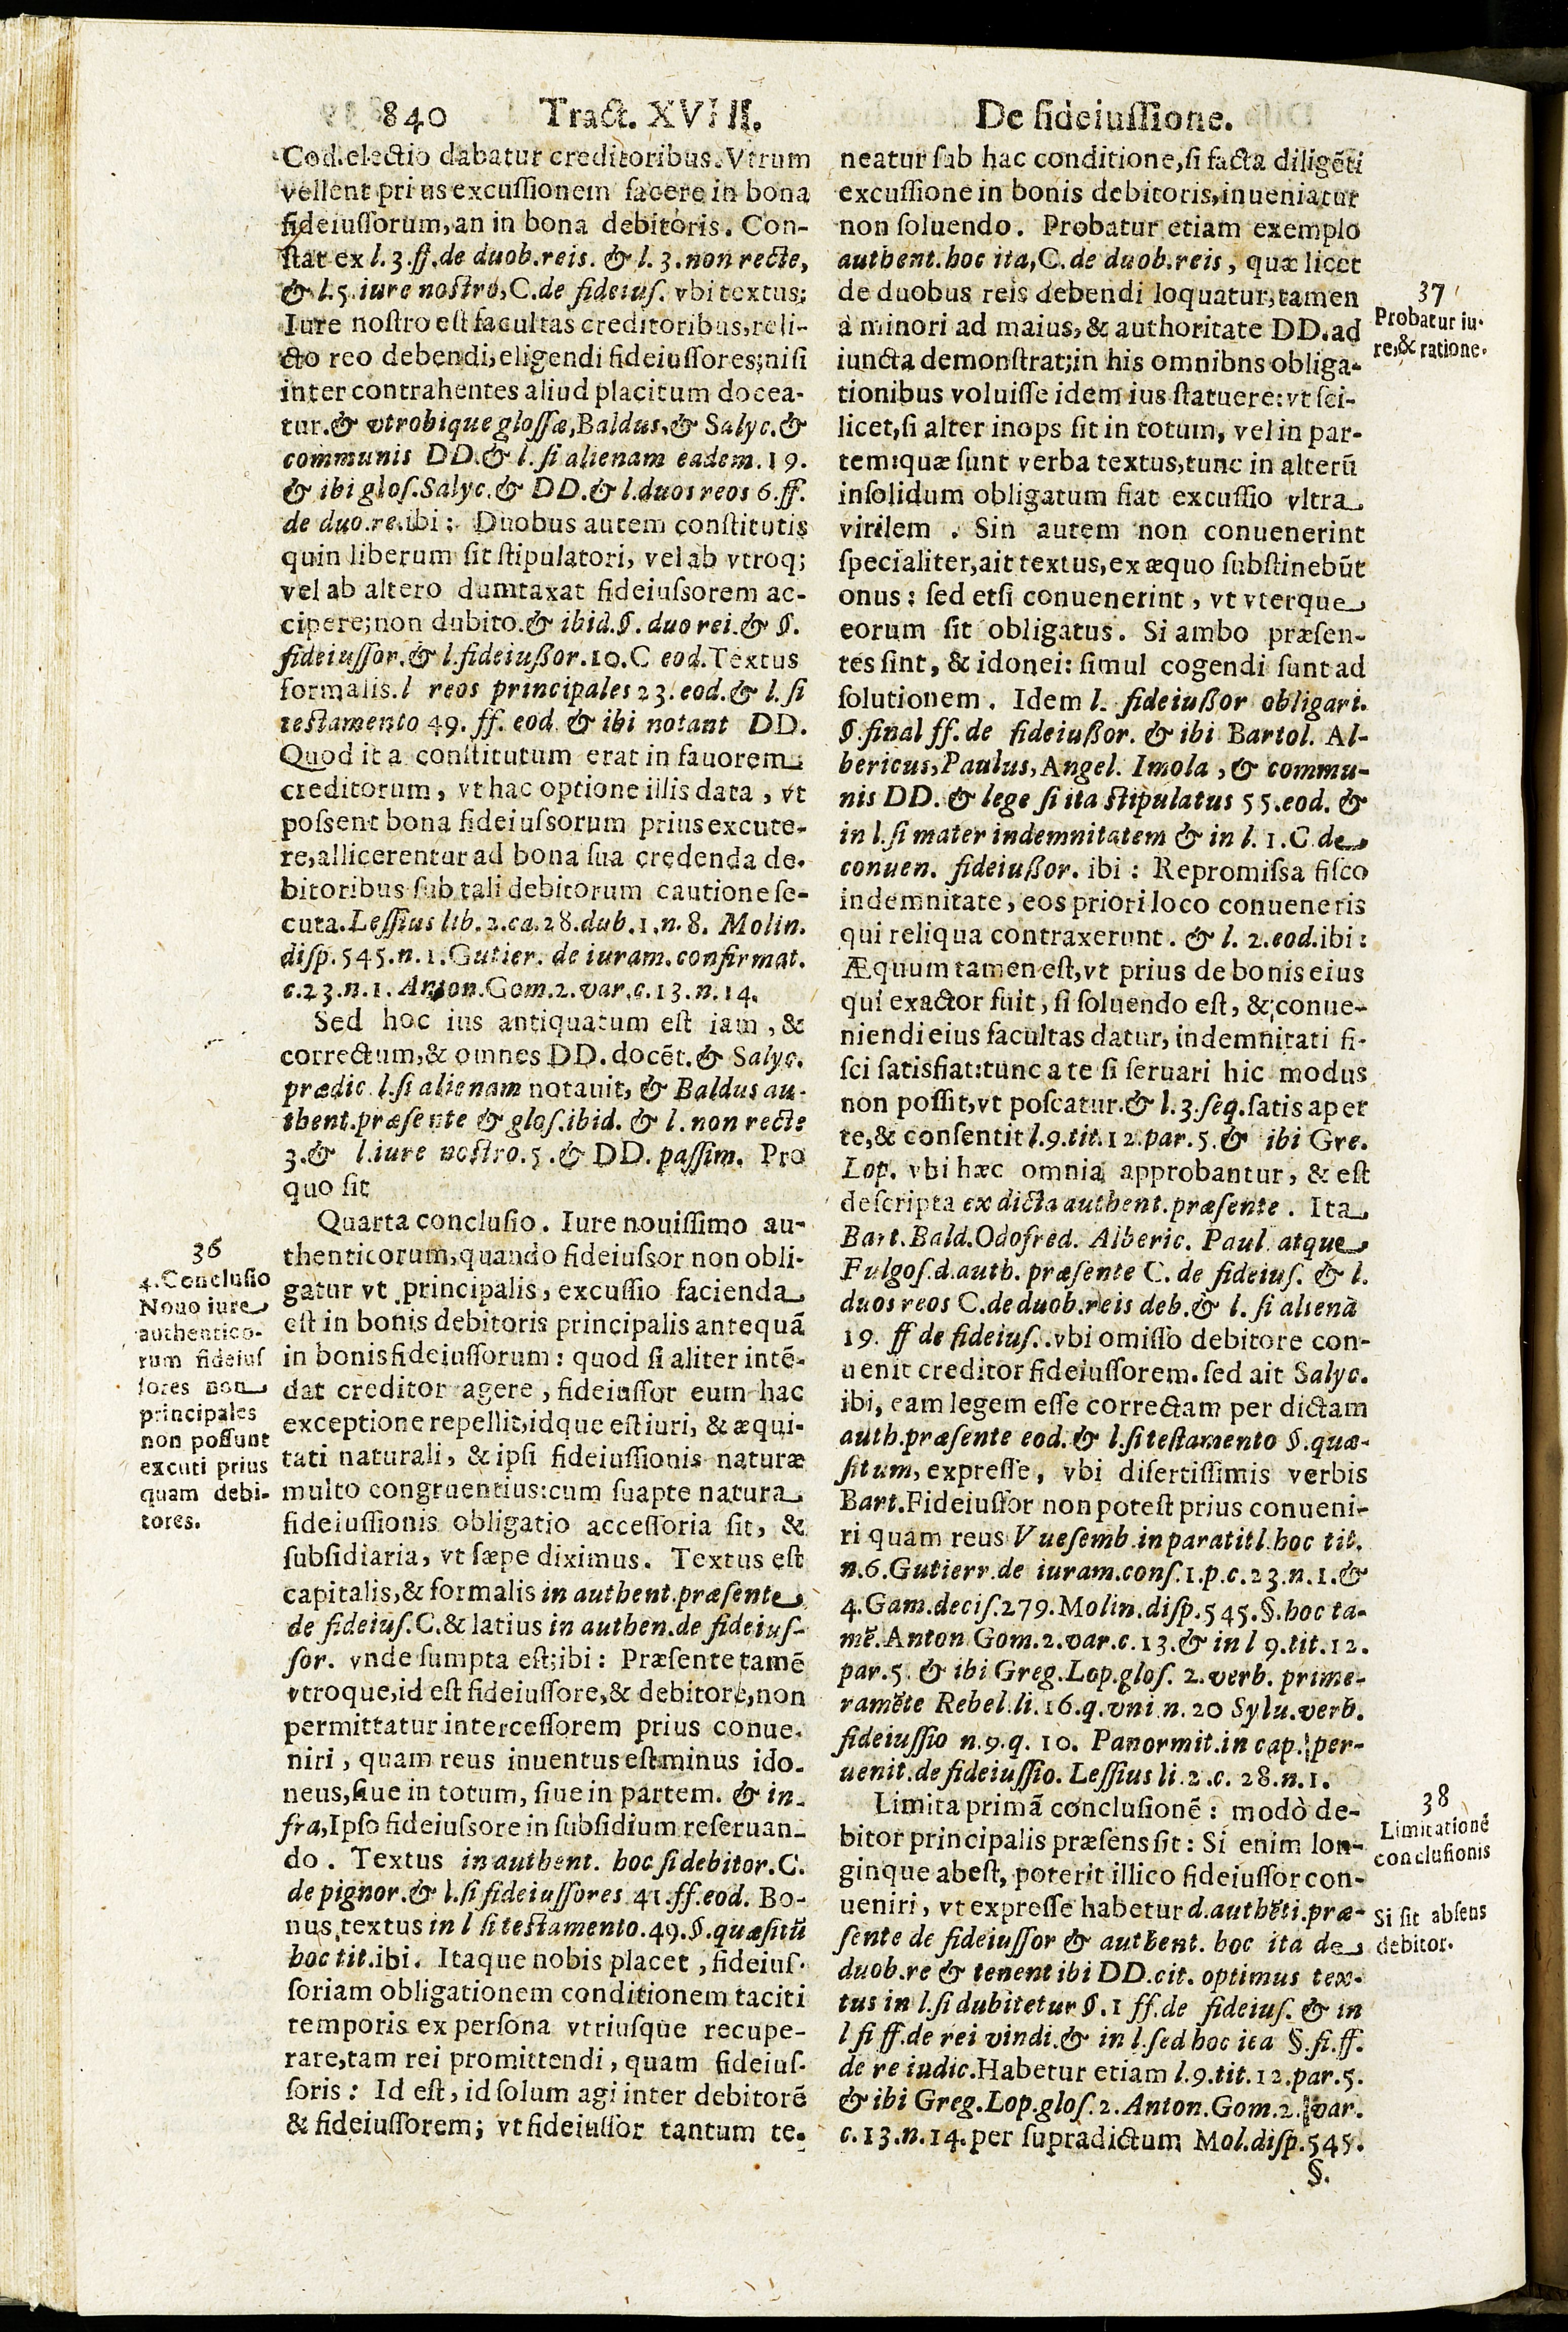 840 Tract. XVIII. De fideiussione.
Cod. electio dabatur creditoribus. Vtrum
vellent prius excussionem facere in bona
fideiussorum, an in bona debitoris. Con-
stat ex l. 3. ff. de duob. reis. & l. 3. non recte,
& l. 5. iure nostro, C. de fideius. vbi textus;
Iure nostro est facultas creditoribus, reli-
cto reo debendi, eligendi fideiussores; nisi
inter contrahentes aliud placitum docea-
tur. & vtrobique glossæ, Baldus, & Salyc. &
communis DD. & l. si alienam eadem. 19.
& ibi glos. Salyc. & DD. & l. duos reos 6. ff.
de duo. re. ibi: Duobus autem constitutis
quin liberum sit stipulatori, vel ab vtroq;
vel ab altero dumtaxat fideiussorem ac-
cipere; non dubito. & ibid. §. duo rei. & §.
fideiussor. & l. fideiussor. 10. C eod. Textus
formalis. l reos principales 23. eod. & l. si
testamento 49. ff. eod. & ibi notant DD.
Quod ita constitutum erat in fauorem
creditorum, vt hac optione illis data, vt
possent bona fideiussorum prius excute-
re, allicerentur ad bona sua credenda de-
bitoribus sub tali debitorum cautione se-
cuta. Lessius lib. 2. ca. 28. dub. 1. n. 8. Molin.
disp. 545. n. 1. Gutier. de iuram. confirmat.
c. 23. n. 1. Anton. Gom. 2. var. c. 13. n. 14.
Sed hoc ius antiquatum est iam, &
correctum, & omnes DD. docẽt. & Salyc.
prædic. l. si alienam notauit, & Baldus au-
thent. præsente & glos. ibid. & l. non recte
3. & l. iure nostro. 5. & DD. passim. Pro
quo sit
Quarta conclusio. Iure nouissimo au-
thenticorum, quando fideiussor non obli-
gatur vt principalis, excussio facienda
est in bonis debitoris principalis antequã
in bonis fideiussorum: quod si aliter intẽ-
dat creditor agere, fideiussor eum hac
exceptione repellit, idque est iuri, & æqui-
tati naturali, & ipsi fideiussionis naturæ
multo congruentius: cum suapte natura
fideiussionis obligatio accessoria sit, &
subsidiaria, vt sæpe diximus. Textus est
capitalis, & formalis in authent. præsente
de fideius. C. & latius in authen. de fideius-
sor. vnde sumpta est; ibi: Præsente tamẽ
vtroque, id est fideiussore, & debitore, non
permittatur intercessorem prius conue-
niri, quam reus inuentus est minus ido-
neus, siue in totum, siue in partem. & in-
fra, Ipso fideiussore in subsidium reseruan-
do. Textus in authent. hoc si debitor. C.
de pignor. & l. si fideiussores 41. ff. eod. Bo-
nus textus in l si testamento. 49. §. quæsitũ
hoc tit. ibi. Itaque nobis placet, fideius-
soriam obligationem conditionem taciti
temporis ex persona vtriusque recupe-
rare, tam rei promittendi, quam fideius-
soris: Id est, id solum agi inter debitorẽ
& fideiussorem; vt fideiussor tantum te-
36
4. Conclusio
Nouo iure
authentico-
rum fideius
sores non
principales
non possunt
excuti prius
quam debi-
tores.
neatur sub hac conditione, si facta diligẽti
excussione in bonis debitoris, inueniatur
non soluendo. Probatur etiam exemplo
authent. hoc ita, C. de duob. reis, quæ licet
de duobus reis debendi loquatur, tamen
à minori ad maius, & authoritate DD. ad
iuncta demonstrat; in his omnibns obliga-
tionibus voluisse idem ius statuere: vt sci-
licet, si alter inops sit in totum, vel in par-
tem: quæ sunt verba textus, tunc in alterũ
insolidum obligatum fiat excussio vltra
virilem. Sin autem non conuenerint
specialiter, ait textus, ex æquo substinebũt
onus: sed etsi conuenerint, vt vterque
eorum sit obligatus. Si ambo præsen-
tes sint, & idonei: simul cogendi sunt ad
solutionem. Idem l. fideiussor obligari.
§. final ff. de fideiussor. & ibi Bartol. Al-
bericus, Paulus, Angel. Imola, & commu-
nis DD. & lege si ita stipulatus 55. eod. &
in l. si mater indemnitatem & in l. 1. C. de
conuen. fideiussor. ibi: Repromissa fisco
indemnitate, eos priori loco conueneris
qui reliqua contraxerunt. & l. 2. eod. ibi:
Æquum tamen est, vt prius de bonis eius
qui exactor fuit, si soluendo est, & conue-
niendi eius facultas datur, indemnitati fi-
sci satisfiat: tunc a te si seruari hic modus
non possit, vt poscatur. & l. 3. seq. satis aper
te, & consentit l. 9. tit. 12. par. 5. & ibi Gre.
Lop. vbi hæc omnia approbantur, & est
descripta ex dicta authent. præsente. Ita
Bart. Bald. Odofred. Alberic. Paul. atque
Fulgos. d. auth. præsente C. de fideius. & l.
duos reos C. de duob. reis deb. & l. si alienã
19. ff de fideius. vbi omisso debitore con-
uenit creditor fideiussorem. sed ait Salyc.
ibi, eam legem esse correctam per dictam
auth. præsente eod. & l. si testamento §. quæ-
situm, expresse, vbi disertissimis verbis
Bart. Fideiussor non potest prius conueni-
ri quam reus Vuesemb. in paratitl. hoc tit.
n. 6. Gutierr. de iuram. cons. 1. p. c. 23. n. 1. &
4. Gam. decis. 279. Molin. disp. 545. §. hoc ta-
mẽ. Anton Gom. 2. var. c. 13. & in l 9. tit. 12.
par. 5. & ibi Greg. Lop. glos. 2. verb. prime-
ramẽte Rebel. li. 16. q. vni. n. 20 Sylu. verb.
fideiussio n. 9. q. 10. Panormit. in cap. per-
uenit. de fideiussio. Lessius li. 2. c. 28. n. 1.
Limita primã conclusionẽ: modò de-
bitor principalis præsens sit: Si enim lon-
ginque abest, poterit illico fideiussor con-
ueniri, vt expresse habetur d. authẽti. præ-
sente de fideiussor & authent. hoc ita de
duob. re & tenent ibi DD. cit. optimus tex-
tus in l. si dubitetur §. 1 ff. de fideius. & in
l fi ff. de rei vindi. & in l. sed hoc ita §. fi. ff.
de re iudic. Habetur etiam l. 9. tit. 12. par. 5.
& ibi Greg. Lop. glos. 2. Anton. Gom. 2. var.
c. 13. n. 14. per supradictum Mol. disp. 545.
§.
37
Probatur iu-
re, & ratione.
38
Limitationẽ
conclusionis
Si sit absens
debitor.